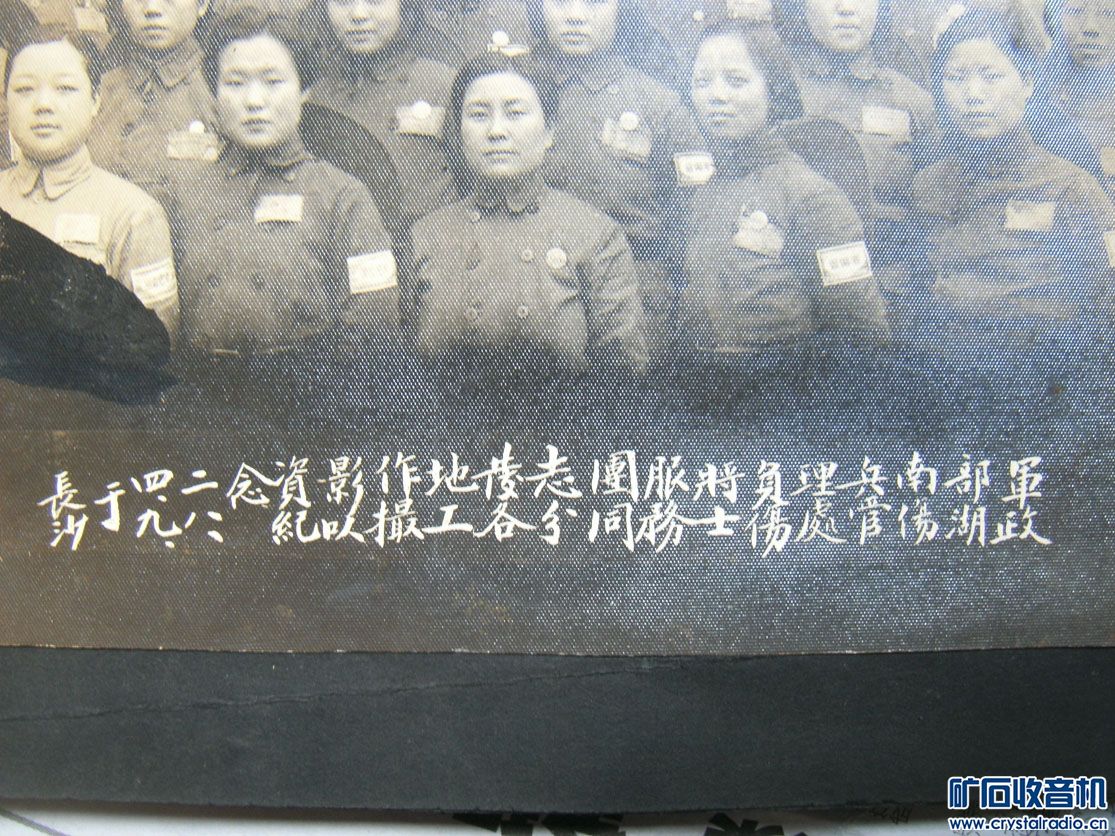 軍政部湖南傷兵管理處負傷將士服務團同志分發各地工作撮影以資紀念 二八、四、九、于長沙
矿石收音机
www.crystalradio.cn